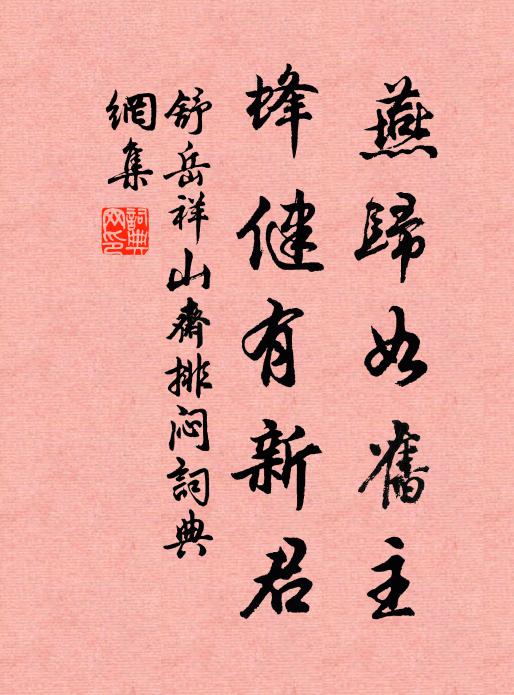 燕歸如舊主
蜂健有新君
舒岳祥山齋排闷詞典
網集
詞典網印